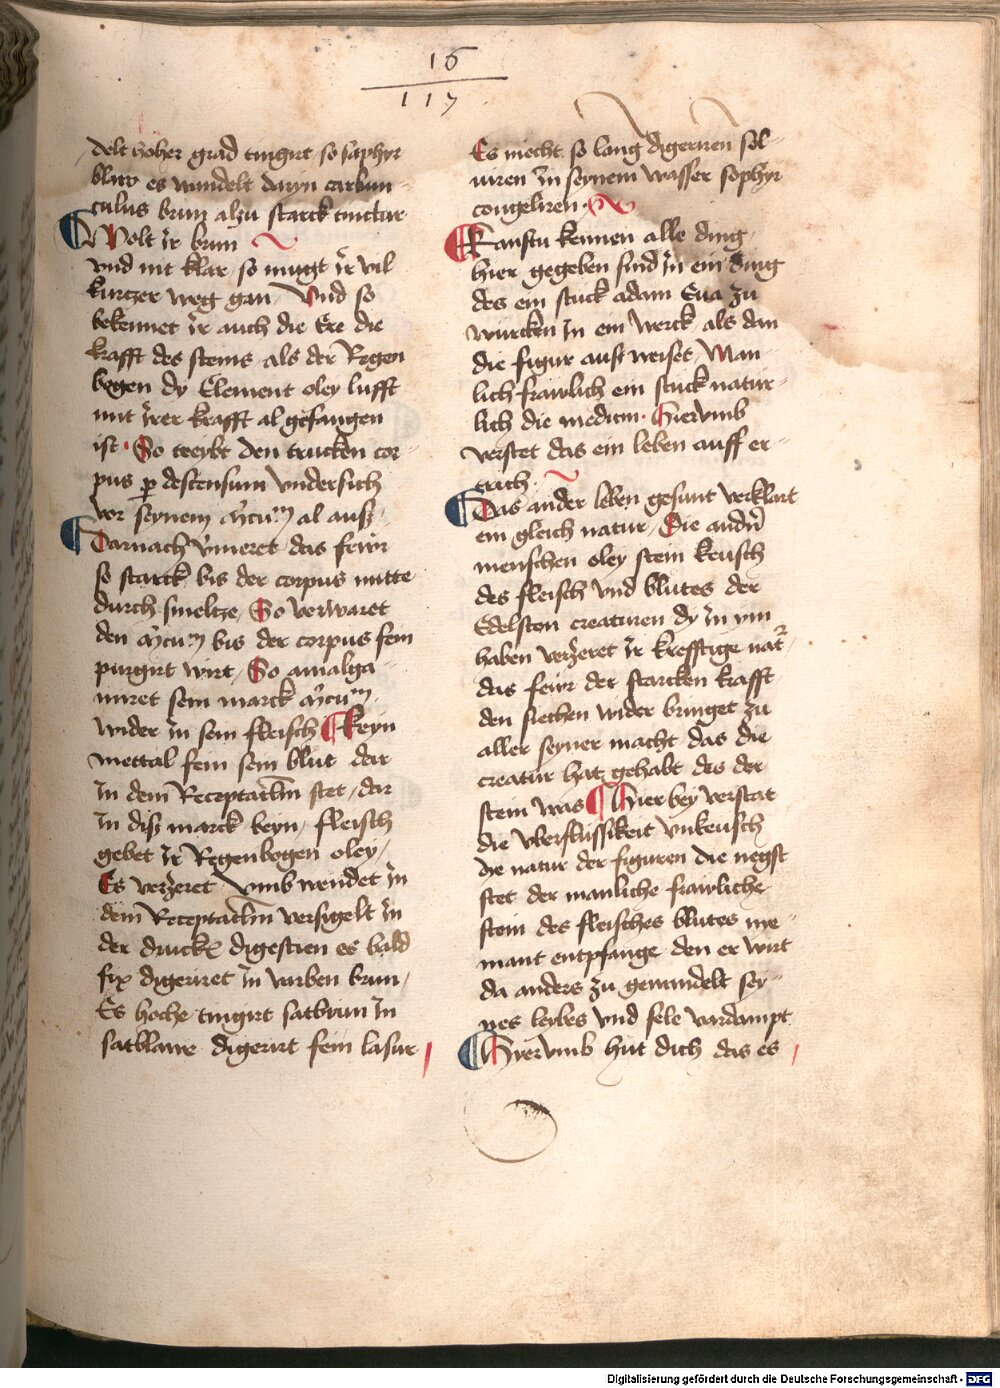 16
117
delt hoher grad tingirt so saphyr
blaw es wandelt daryn carbun
culus brun alzu starck tinctur
Wolt ir brun
vnd nit klar so mugt ir vil
kurtzer weg gan Vnd so
bekennet ir auch die Ere die
krafft des steins als der Regen
bogen dy Element oley lufft
mit irer krafft al gefangen
ist So treibt den trucken cor
pus per descensum vndersich
vor seynem mercurium al auß
Darnach ymeret das feur
so starck bis der corpus mitte
durch smeltze So verwaret
den mercurium bis der corpus fein
purgirt wirt So amalga
miret sein marck mercurium
wider in sein fleisch Keyn
mettal fein sein blut dar
In dem Receptaclum stet dar
In diß marck beyn fleisch
gebet ir Regenbogen oley
Es verzeret vmbwendet in
dem Receptaclum versigelt in
der drucken digestien es bald
fix digeriret in varben brun
Es hoche tingirt satbrun in
satblawe digerirt fein lasur
Es mocht so lang digeriren sol
uiren in seynem wasser sophyr
congeliren
Kanstu kennen alle ding
hier gegeben sind in ein ding
des ein stuck adam Eua zu
wurcken in ein werck als dan
die figur auß weiset Man
lich frawlich ein stuck natur
lich die medicin Hiervmb
verstet das ein leben auff er
trich
Das ander leben gesunt verklart
ein gleich natur Die andern
menschen oley stein keusch
des fleisch vnd blutes der
Edelston creaturen dy in ym
haben verzeret ir krefftige natur
das feur der starcken krafft
den siechen wider bringet zu
aller seyner macht das die
creatur hatz gehabt des der
stein was Hier bey verstat
die vberflussikeit vnkeusch
die natur der figuren die negst
stet der manliche frawliche
stein des fleisches blutes nye
mant entpfange den er wirt
da anders zu gewandelt sey
nes leybes vnd sele vordampt
Hyervmb hut dich das es
Digitalisierung gefördert durch die Deutsche Forschungsgemeinschaft - DFG